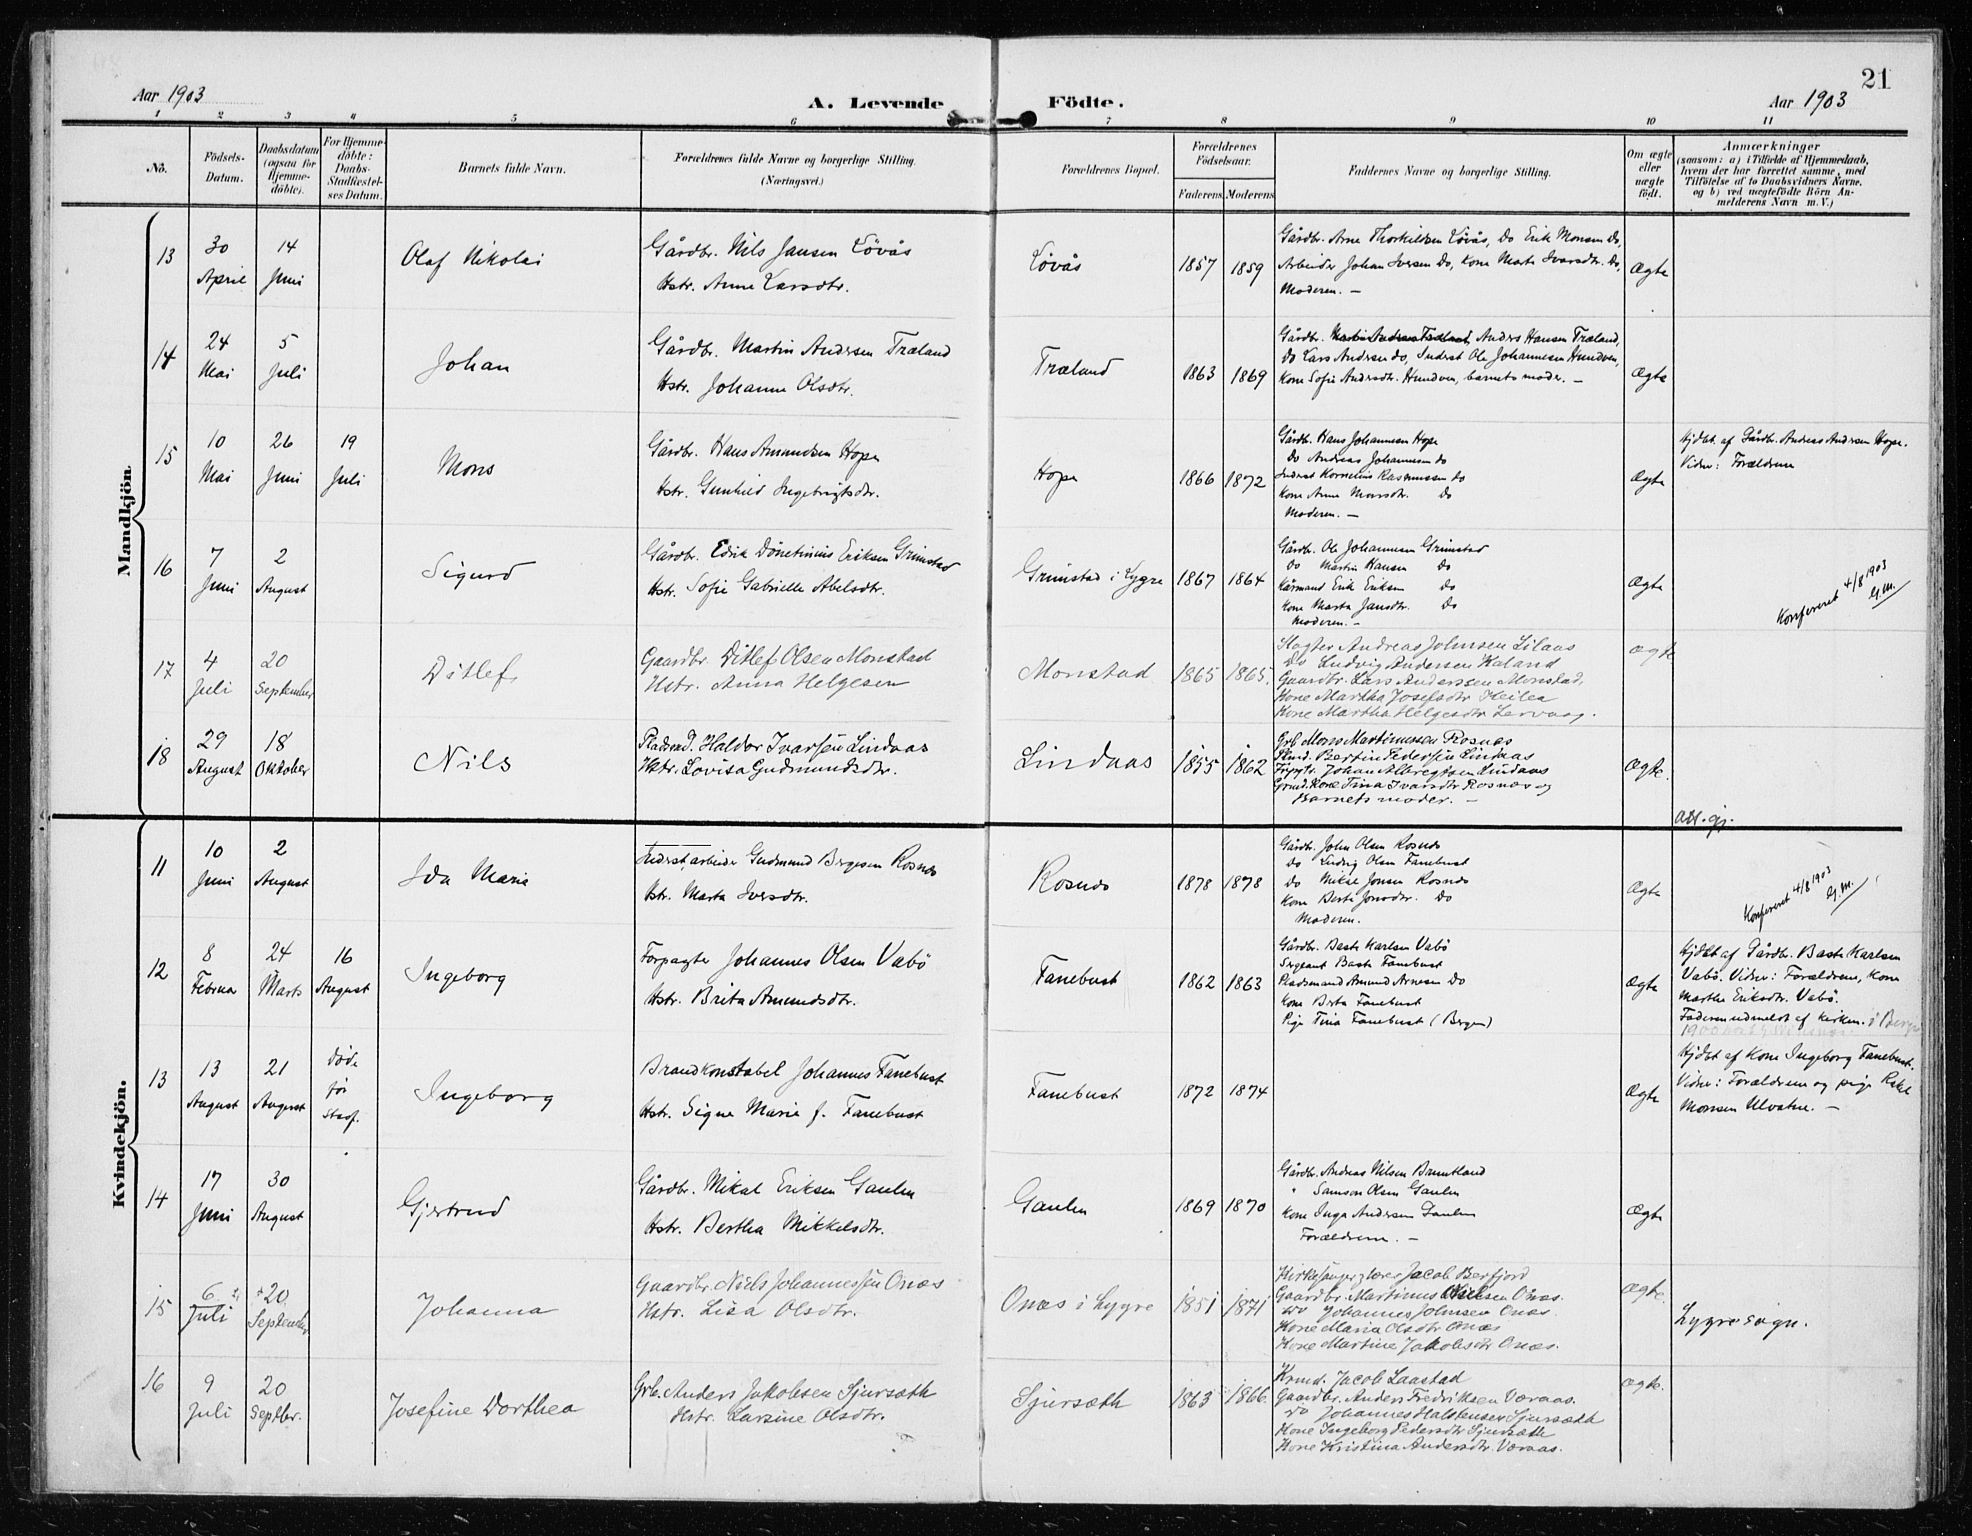 21
Aar 1903
A. Levende Födte.
Aar 1903
1 2 3 4 5 6 7 8 9 10 11
No.
Födsels-
Datum.
Daabsdatum
(ogsaa for
Hjemme-
döbte).
For Hjemme-
döbte:
Daabs-
Stadfæstel-
ses Datum.
Barnets fulde Navn.
Forældrenes fulde Navne og borgerlige Stilling.
(Næringsvei.)
Forældrenes Bopæl.
Forældrenes
Födselsaar.
Faderens Moderens
Faddernes Navne og borgerlige Stilling.
Om ægte
eller
uægte
födt.
Anmærkninger
(saasom: a) i Tilfælde af Hjemmedaab,
hvem der har forrettet samme, med
Tilföielse af to Daabsvidners Navne,
og b) ved uægtefödte Börn An-
melderens Navn m. V.)
Mandkjön
13
30
April
14
Juni
Olaf Nikolai
Gårdbr. Nils Jansen Løvås
Hstr. Anne Larsdtr.
Løvås
1857 1859
Gårdbr. Arne Thorkildsen Løvås, Do Erik Monsen Do,
Arbeider Johan Iversen Do, Kone Marta Ivarsdtr. Do,
Moderen. —
Ægte
14
24
Mai
5
Juli
Johan
Gårdbr. Martin Andersen Træland
Hstr. Johanne Olsdtr.
Træland
1863 1869
Gårdbr. Anders Hansen Træland,
Do Lars Andersen do, Inderst Ole Johannesen Hundven,
Kone Sofie Andersdtr. Hundven, barnets moder. —
Ægte
15
10
Mai
26
Juni
19
Juli
Mons
Gårdbr. Hans Amundsen Hope
Hstr. Gunhild Ingebrigtsdtr.
Hope
1866 1872
Gårdbr. Hans Johannesen Hope
Do Andreas Johannesen do
Inderst Kornelius Rasmussen do
Kone Anne Monsdtr. Do
Moderen. —
Ægte
Hjdbt. af Gårdbr. Andreas Andersen Hope.
Vidner: Forældrene
16
7
Juni
2
August
Sigurd
Gårdbr. Edik Dönetinius Eriksen Grimstad
Hstr. Sofie Gabrielle Abelsdtr.
Grimstad i Lygre
1867 1864
Gårdbr. Ole Johannesen Grimstad
Do Martin Hansen Do
Kårmand Erik Eriksen Do
Kone Marta Jansdtr. Do
Moderen. —
Ægte
Konfereret 4/8 1903
G.M.
17
4
Juli
20
September
Ditlef
Gaardbr. Ditlef Olsen Monstad
Hstr. Anna Helgesen
Monstad
1865 1865.
Slagter Andreas Johnsen Lilaas
Do Ludvig Andersen Kaland
Gaardbr. Lars Anderssen Monstad.
Kone Martha Josefsdtr Keilen
Kone Martha Helgesdtr Lervaag.
ægte
18
29
August
18
Oktober
Nils
Pladsmd. Haldor Ivarsen Lindaas
Hstr. Lovisa Gudmundsdtr.
Lindaas
1855 1862
Grb Mons Martinussen Rosnes
Plmd. Bertin Pedersen Lindaas
Johan Albregtsen Lindaas
Grmd. Kone Tina Ivarsdtr Rosnes og
Barnets moder. —
Ægte.
Att. gj.
Kvindekjön.
11
10
Juni
2
August
Ida Marie
Inderst, arbeider Gudmund Børgesen Rosnes
Hstr. Marta Iversdtr.
Rosnes
1878 1878
Gårdbr. John Olsen Rosnes
Do Ludvig Olsen Fanebust
Do Mikse Jonsen Rosnes
Kone Berte Jonsdtr. Do
Moderen.
Ægte
Konfereret 4/8 1903
G.M.
12
8
Februa
24
Marts
16
August
Ingeborg
Forpagter Johannes Olsen Vabø
Hstr. Brita Amundsdtr.
Fanebust
1862 1863
Gårdbr. Baste Karlsen Vabø
Sergeant Baste Fanebust
Pladsmand Amund Arnesen Do
Kone Berta Fanebust
Pige Tina Fanebust (Bergen)
Ægte
Hjdbt af Gårdbr. Baste Karlsen
Vabø. Vidner: Forældrene, Kone
Marthe Eriksdtr. Vabø.
Faderen udmeldt af kirken. i Bergen
13
13
August
21
August
Døde
før
Stadf.
Ingeborg
Brandkonstabel Johannes Fanebust
Hstr. Signe Marie f. Fanebust
Fanebust
1872 1874
Ægte
Hjdbt af Kone Ingeborg Fanebust.
Vidner: Forældrene og pige Rakel
Monsen Ulvatne. —
14
17
Juni
30
August
Gjertrud
Gårdbr. Mikal Eriksen Gaulen
Hstr. Bertha Mikkelsdtr.
Gaulen
1869 1870
Gårdbr. Andreas Nilsen Bruntland
" Samson Olsen Gaulen
Kone Inga Andersen Gaulen
Forældrene. —
Ægte
15
6
Juli
20
September
Johanna
Gaardbr. Niels Johannessen Onæs
Hstr. Lisa Olsdtr.
Onæs i Lygre
1851 1871
Kirkesanger, lærer Jacob Berfjord
Gaardbr. Martinus Nielsen Onæs.
Do Johannes Johnsen Onæs.
Kone Maria Olsdtr Onæs
Kone Martine Jakobsdtr Onæs.
Ægte.
Lygre sogn.
16
9
Juli
20
Septber.
Josefine Dorthea
Grb. Anders Jakobsen Sjursæth
Hstr. Larsine Olsdtr.
Sjursæth
1863 1866.
Krmd. Jacob Laastad
Gaardbr. Anders Fredriksen Væraas.
Do Johannes Halstensen Sjursæth
Kone Ingeborg Pedersdtr Sjursæth
Kone Kristina Andersdtr. Væraas.
ægte.